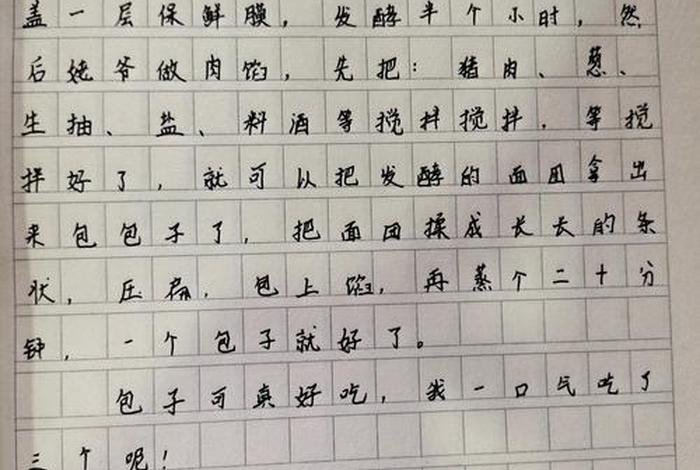 盖一层保鲜膜，发酵半个小时，然
后姥爷做肉馅，先把：猪肉、葱、
生抽、盐、料酒等搅拌搅拌．等搅
拌好了，就可以把发酵的面团拿出
来包包子了，把面团揉成长长的条
状，压扁．包上馅，再蒸个二十分
钟，一个包子就好了。
包子可真好吃，我一口气吃了
三个呢！